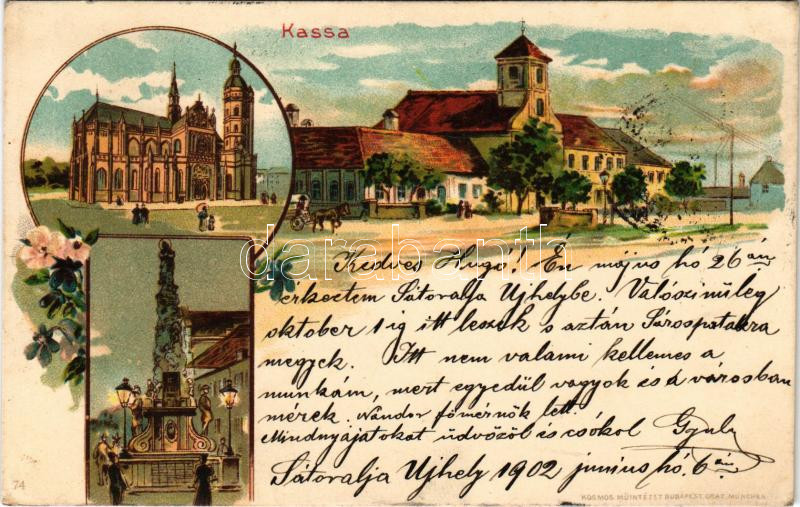 Kassa
darabanth
Kedves Hugó! Én május hó 26 án
érkeztem Sátoralja Ujhelybe. Valószinüleg
oktober 1 ig itt leszek s aztán Sárospatakra
megyek. Itt nem valami kellemes a
munkám, mert egyedül vagyok és a városban
mérek. Nándor főmérnök lett.
Mindnyájatokat üdvözöl és csókol Gyula
Sátoralja Ujhely 1902 junius hó 6 án
74
KOSMOS MÜINTÉZET BUDAPEST, GRAZ, MÜNCHEN